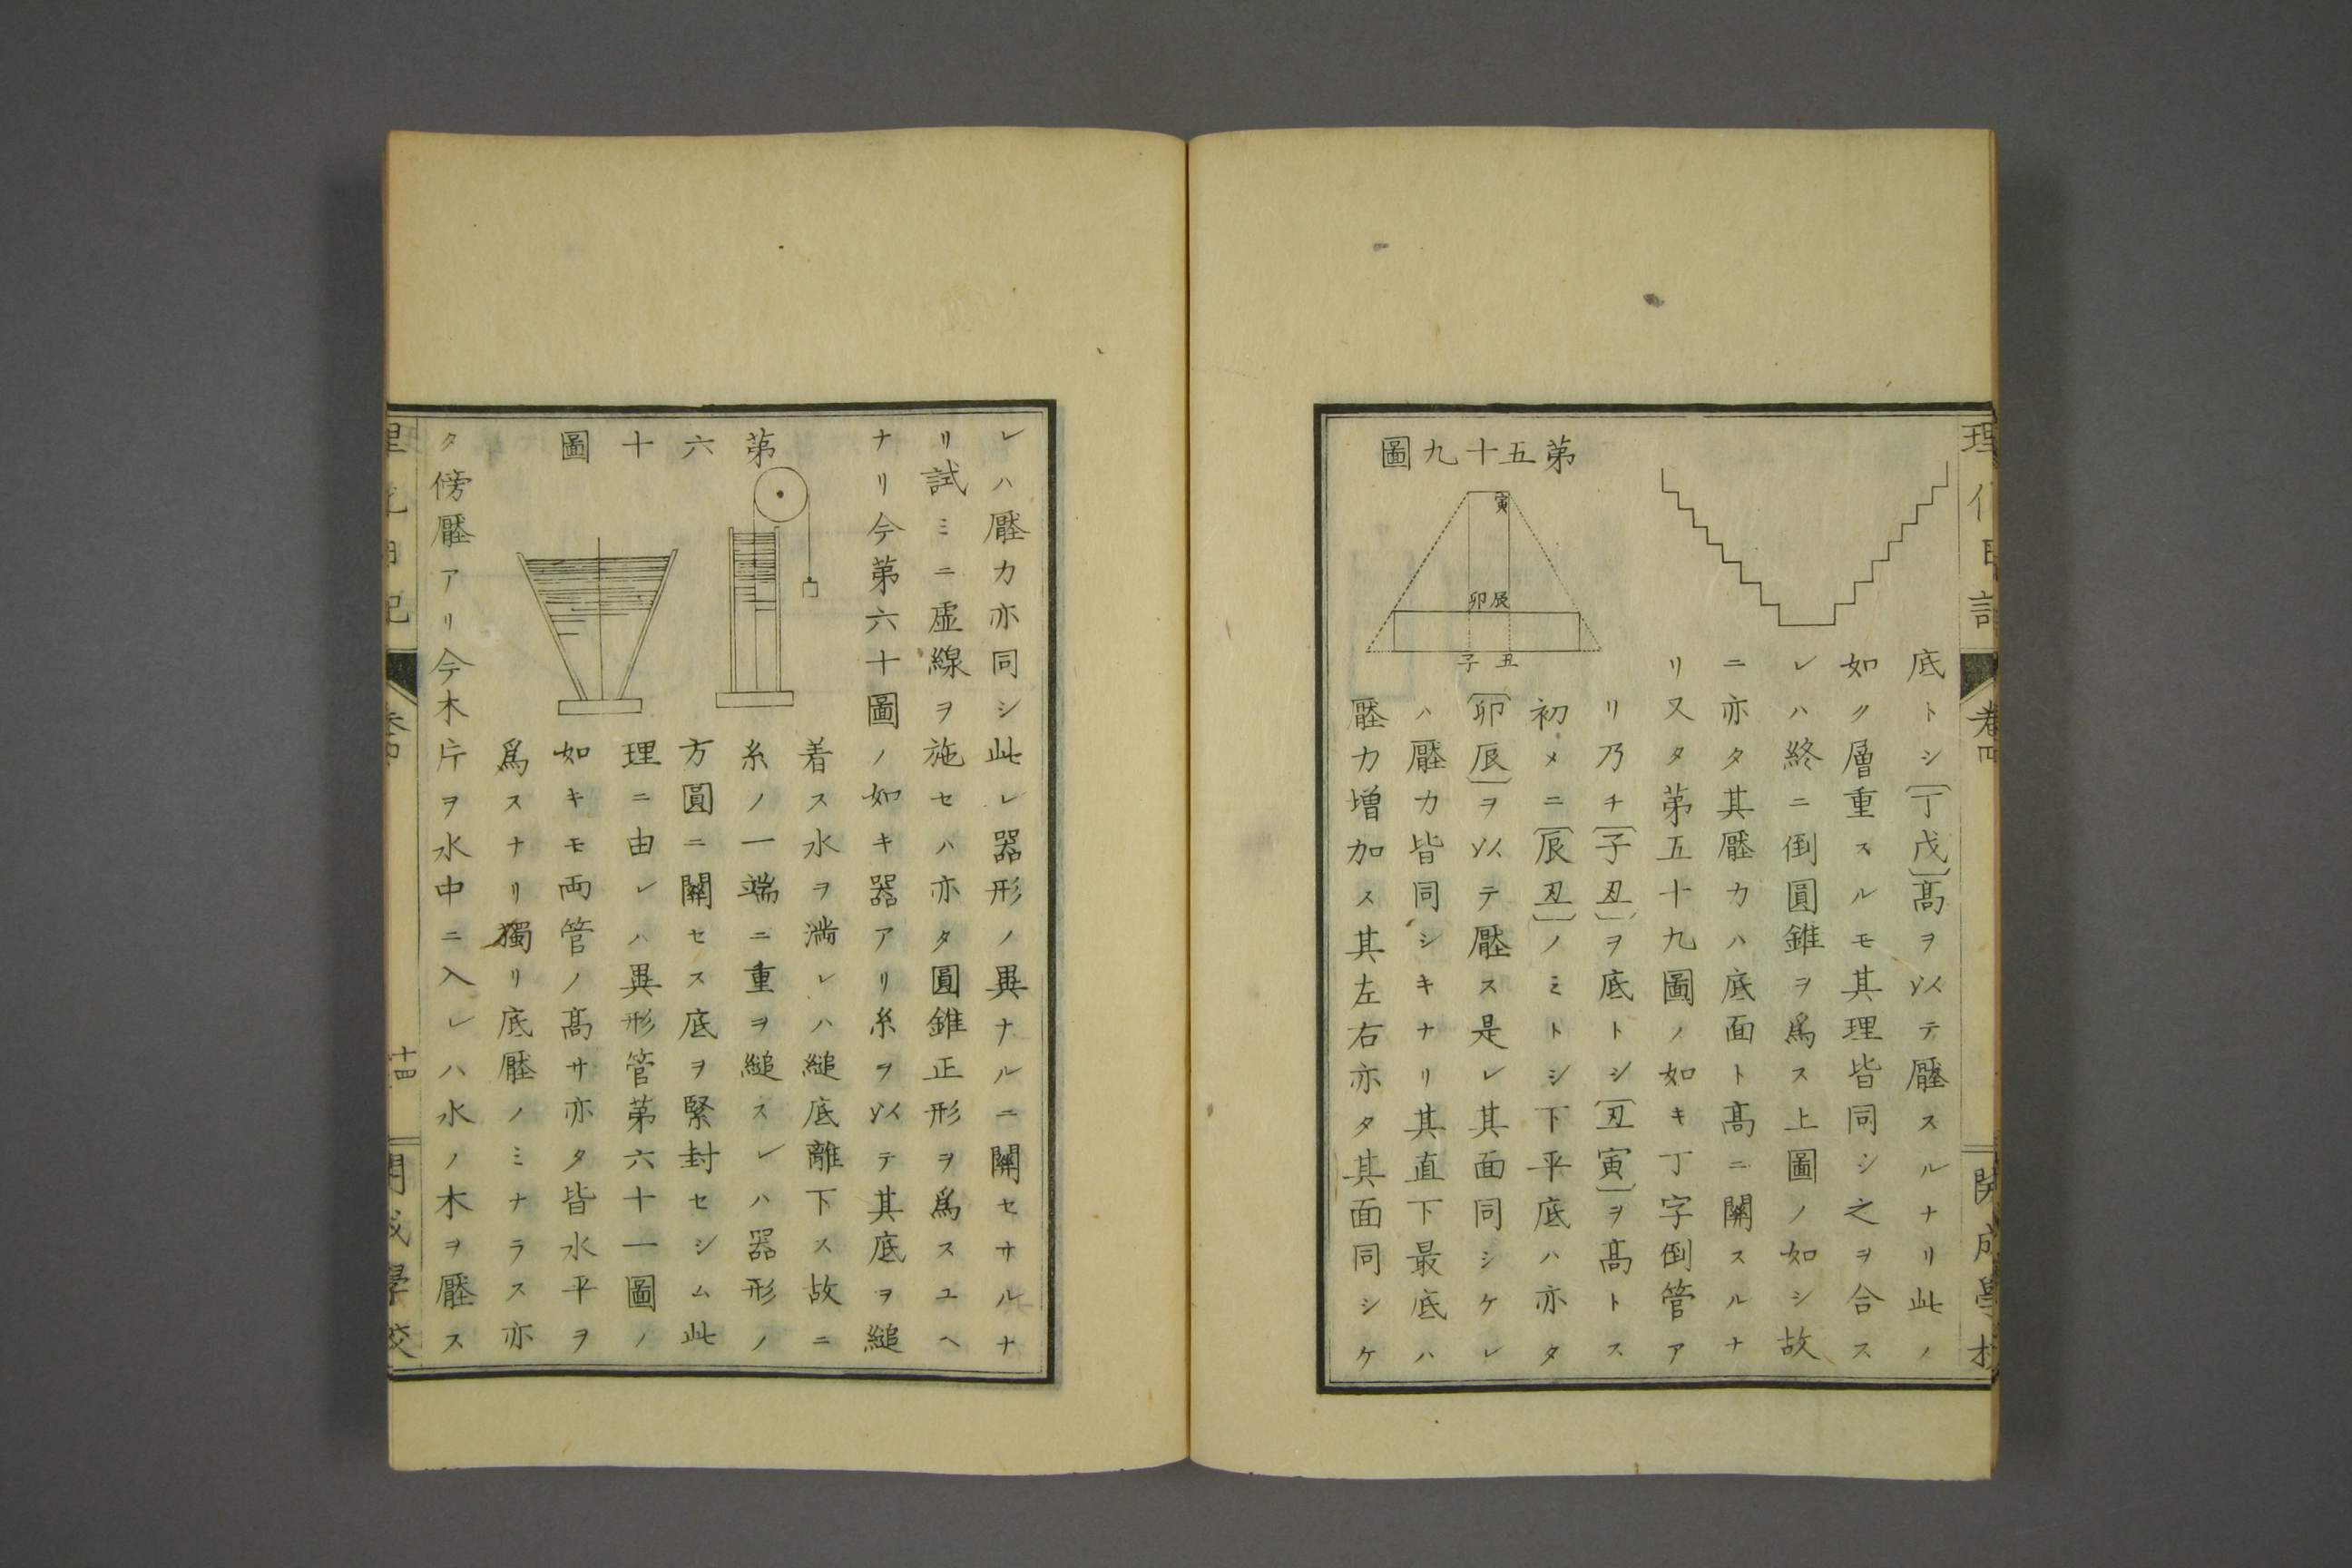 理化日記
卷四
開成學校
底トシ〔丁戊〕髙ヲ以テ壓スルナリ此ノ
如ク層重スルモ其理皆同シ之ヲ合ス
レハ終ニ倒圓錐ヲ爲ス上圖ノ如シ故
ニ亦タ其壓力ハ底面ト髙ニ關スルナ
リ又タ第五十九圖ノ如キ丁字倒管ア
リ乃チ〔子丑〕ヲ底トシ〔丑寅〕ヲ髙トス
初メニ〔辰丑〕ノミトシ下平底ハ亦タ
〔卯辰〕ヲ以テ壓ス是レ其面同シケレ
ハ壓力皆同シキナリ其直下最底ハ
壓力增加ス其左右亦タ其面同シケ
第五十九圖
寅
卯辰
子丑
レハ壓力亦同シ此レ器形ノ異ナルニ關セサルナ
リ試ミニ虛線ヲ施セハ亦タ圓錐正形ヲ爲スユヘ
ナリ今第六十圖ノ如キ器アリ糸ヲ以テ其底ヲ縋
着ス水ヲ滿レハ縋底離下ス故ニ
糸ノ一端ニ重ヲ縋スレハ器形ノ
方圓ニ關セス底ヲ緊封セシム此
理ニ由レハ異形管第六十一圖ノ
如キモ両管ノ髙サ亦タ皆水平ヲ
爲スナリ獨リ底壓ノミナラス亦
タ傍壓アリ今木片ヲ水中ニ入レハ水ノ木ヲ壓ス
第六十圖
十四
開成學校